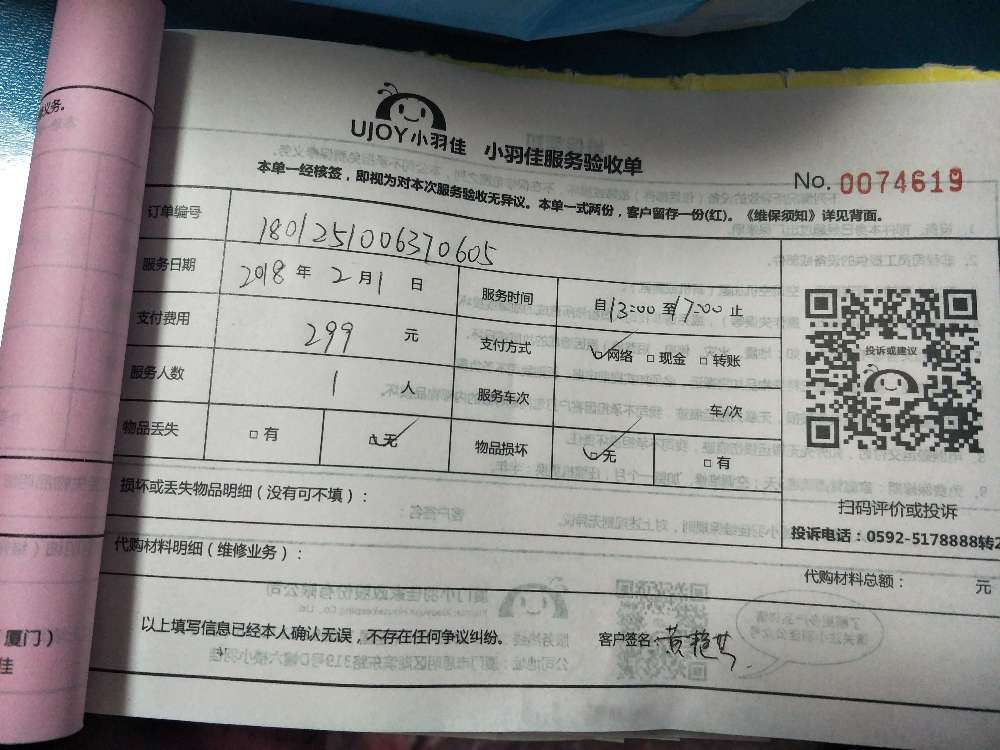 义务。
UJOY小羽佳 小羽佳服务验收单
No. 0074619
本单一经核签，即视为对本次服务验收无异议。本单一式两份，客户留存一份(红)。《维保须知》详见背面。
订单编号 1801251006370605
服务日期 2018 年 2 月 1 日 服务时间 自 13:00 至 17:00 止
支付费用 299 元 支付方式 网络 现金 转账
服务人数 1 人 服务车次 车/次
物品丢失 有 无 物品损坏 无 有
投诉或建议
扫码评价或投诉
投诉电话：0592-5178888转2
损坏或丢失物品明细（没有可不填）：
代购材料明细（维修业务）：
代购材料总额： 元
以上填写信息已经本人确认无误，不存在任何争议纠纷。 客户签名：黄艳
厦门）
佳